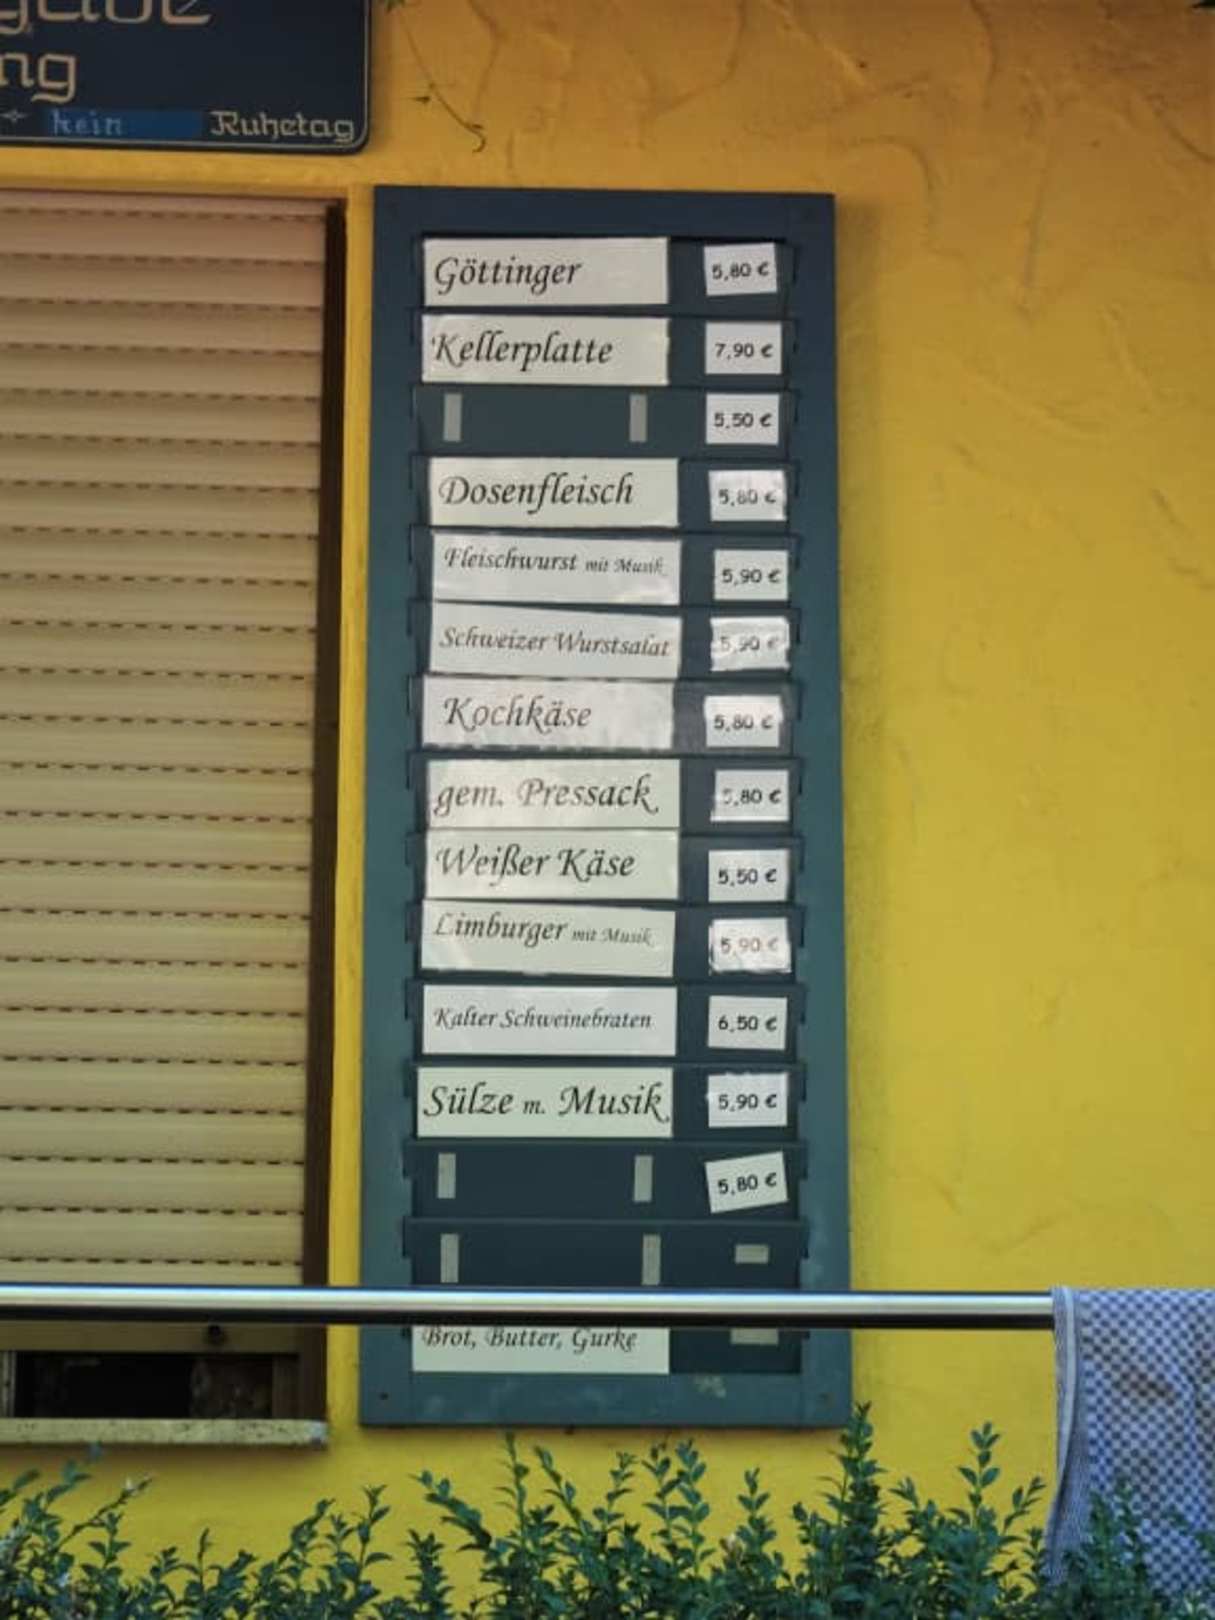 ng
kein Ruhetag
Göttinger 5,80 €
Kellerplatte 7,90 €
5,50 €
Dosenfleisch 5,80 €
Fleischwurst mit Musik 5,90 €
Schweizer Wurstsalat 5,90 €
Kochkäse 5,80 €
gem. Pressack 5,80 €
Weißer Käse 5,50 €
Limburger mit Musik 5,90 €
Kalter Schweinebraten 6,50 €
Sülze m. Musik 5,90 €
5,80 €
Brot, Butter, Gurke